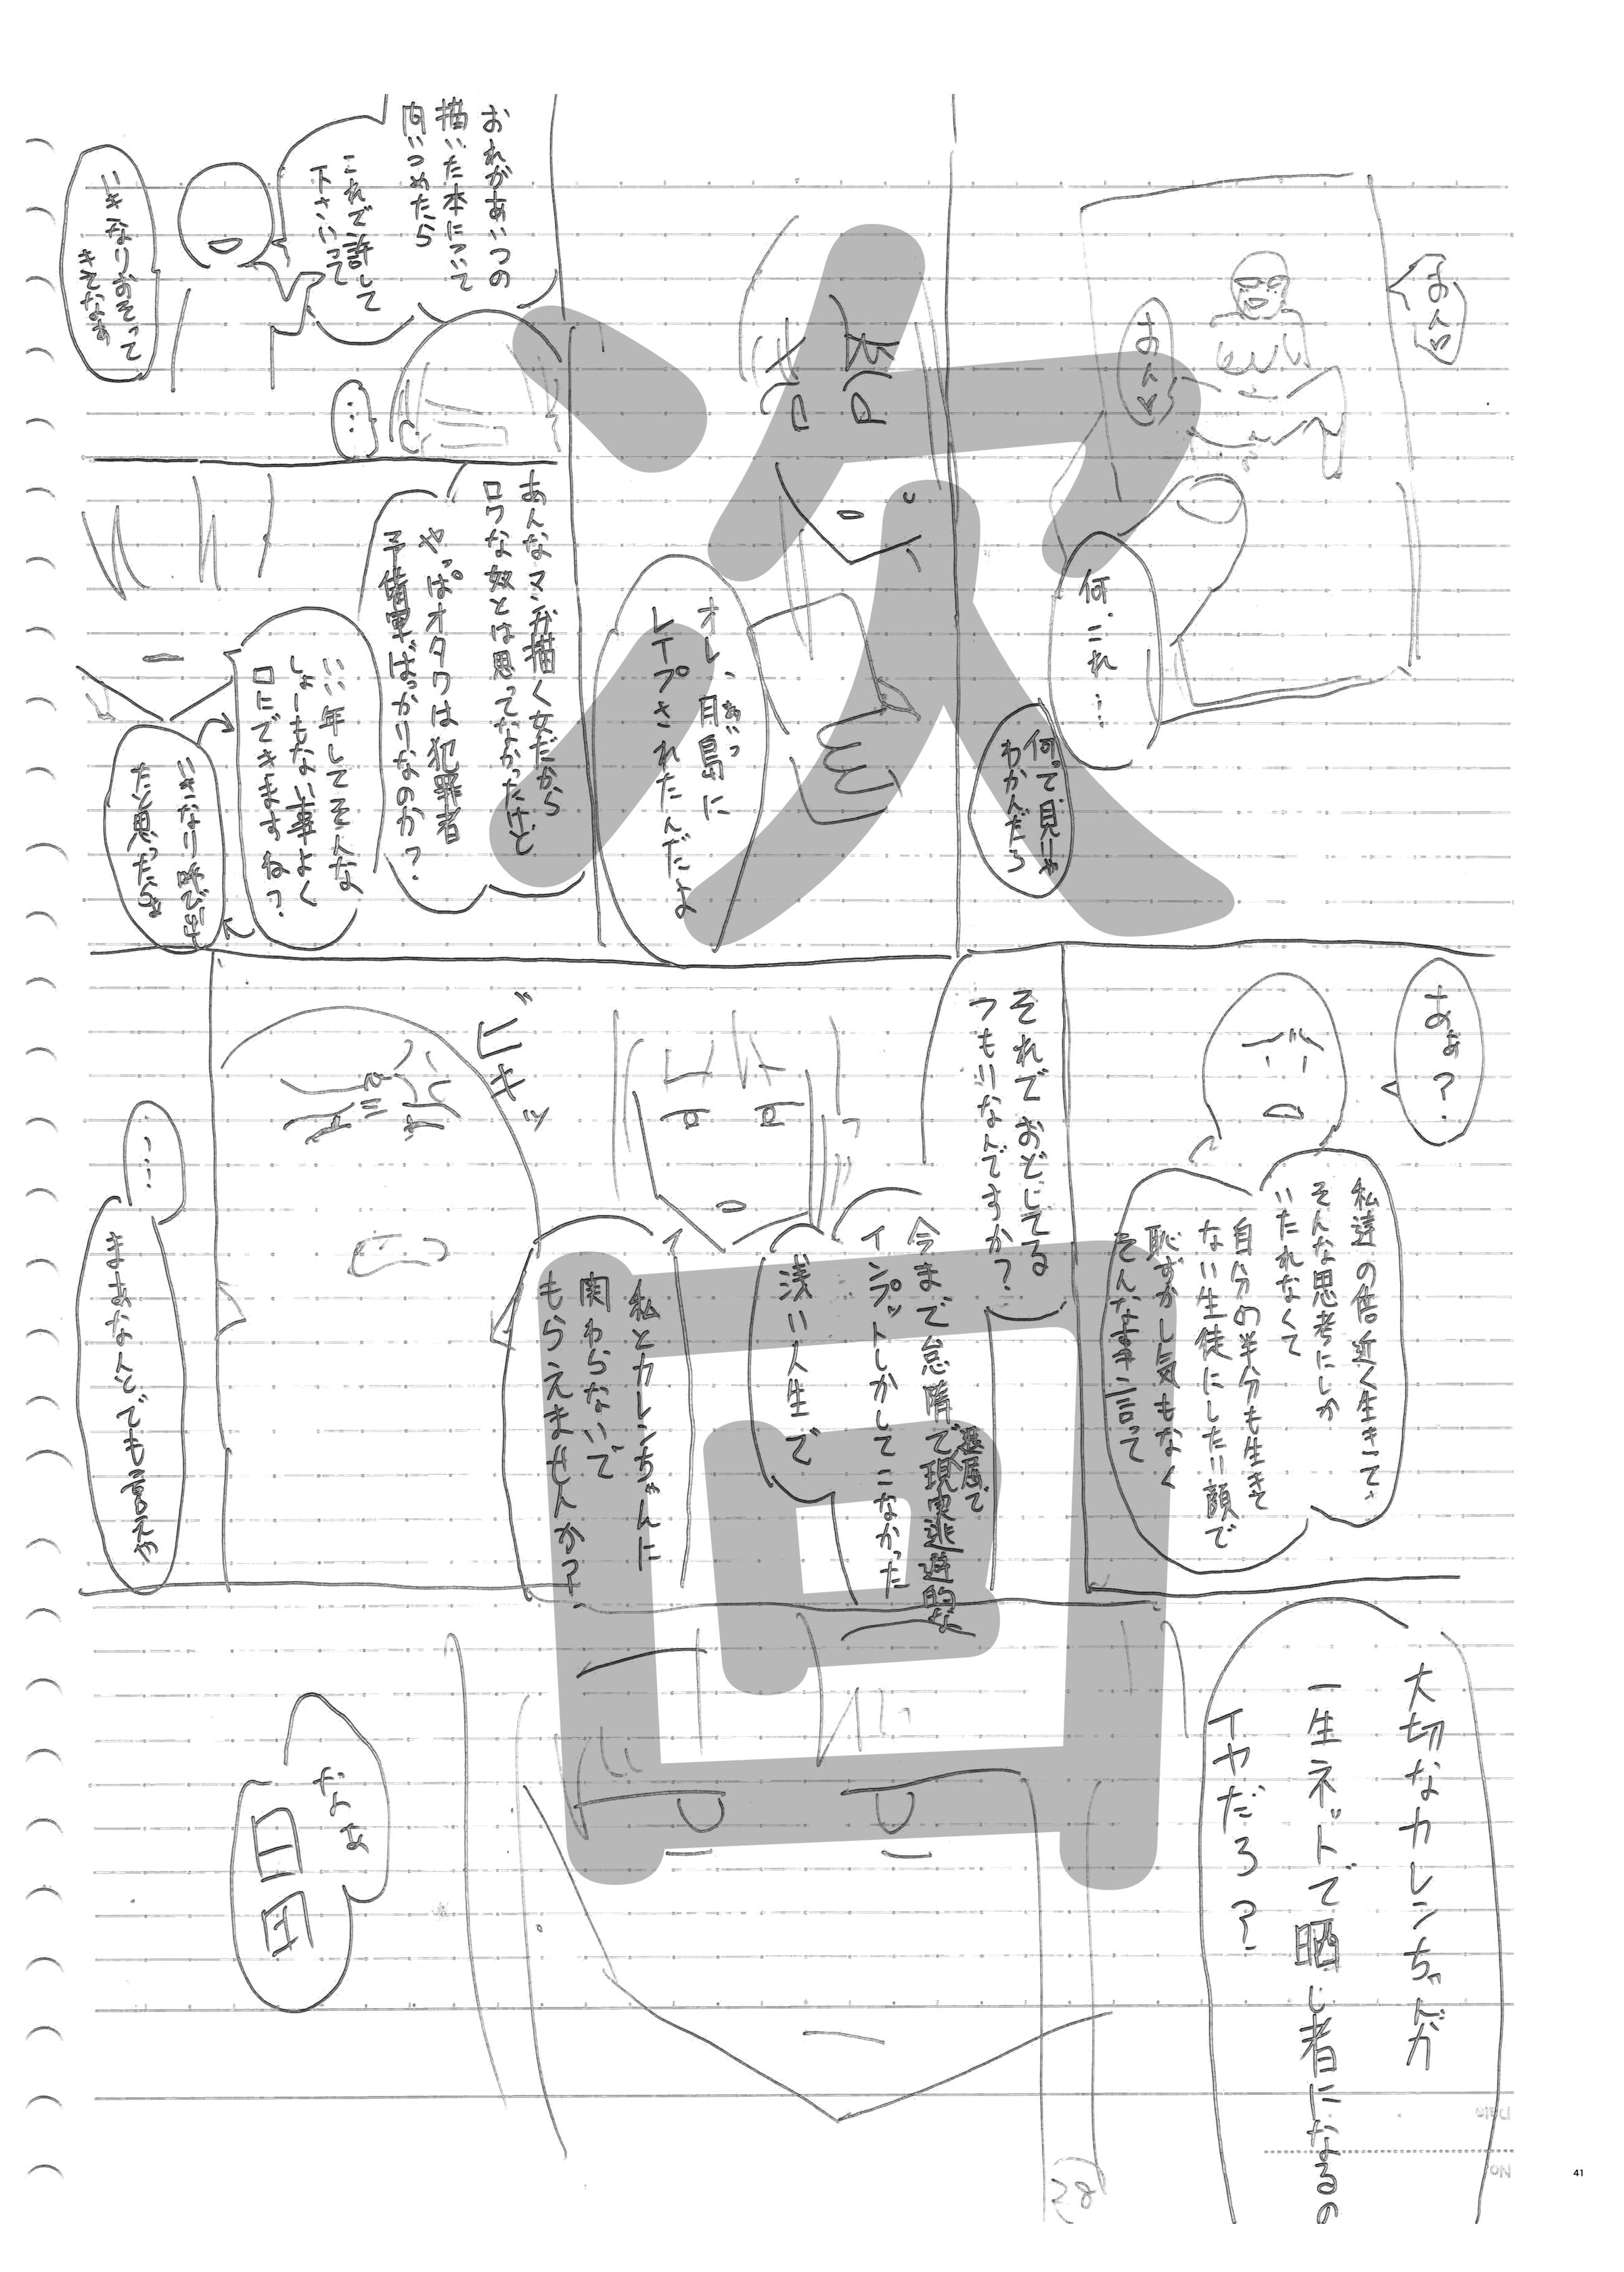 何、これ…
何って見りゃ
わかんだろ
オレ、目島に
あいつ
レイプされたんだよ
おれがあいつの
描いた本について
問いつめたら
これで許して
下さいって
いきなりおそって
きてなぁ
…
あんなマンガ描く女だから
ロクな奴とは思ってなかったけど
やっぱオタクは犯罪者
予備軍ばっかりなのか？
いい年してそんな
しょーもない事よく
口にできますね？
いきなり呼び出し
だと思ったら
あぁ？
私達の倍近く生きて
そんな思考にしか
いたれなくて
自分の半分も生きて
ない生徒にしたり顔で
恥ずかし気もなく
そんなまま言って
それでおどしてる
つもりなんですか？
今まで怠惰で退屈で現実逃避的な
インプットしかしてこなかった
浅い人生で
私とカレンちゃんに
関わらないで
もらえませんか？
ビキッ
…
まぁなんとでも言えや
大切なカレンちゃんが
一生ネットで晒し者になるの
イヤだろ？
なぁ
日田
次
回
38
41
No.
Date